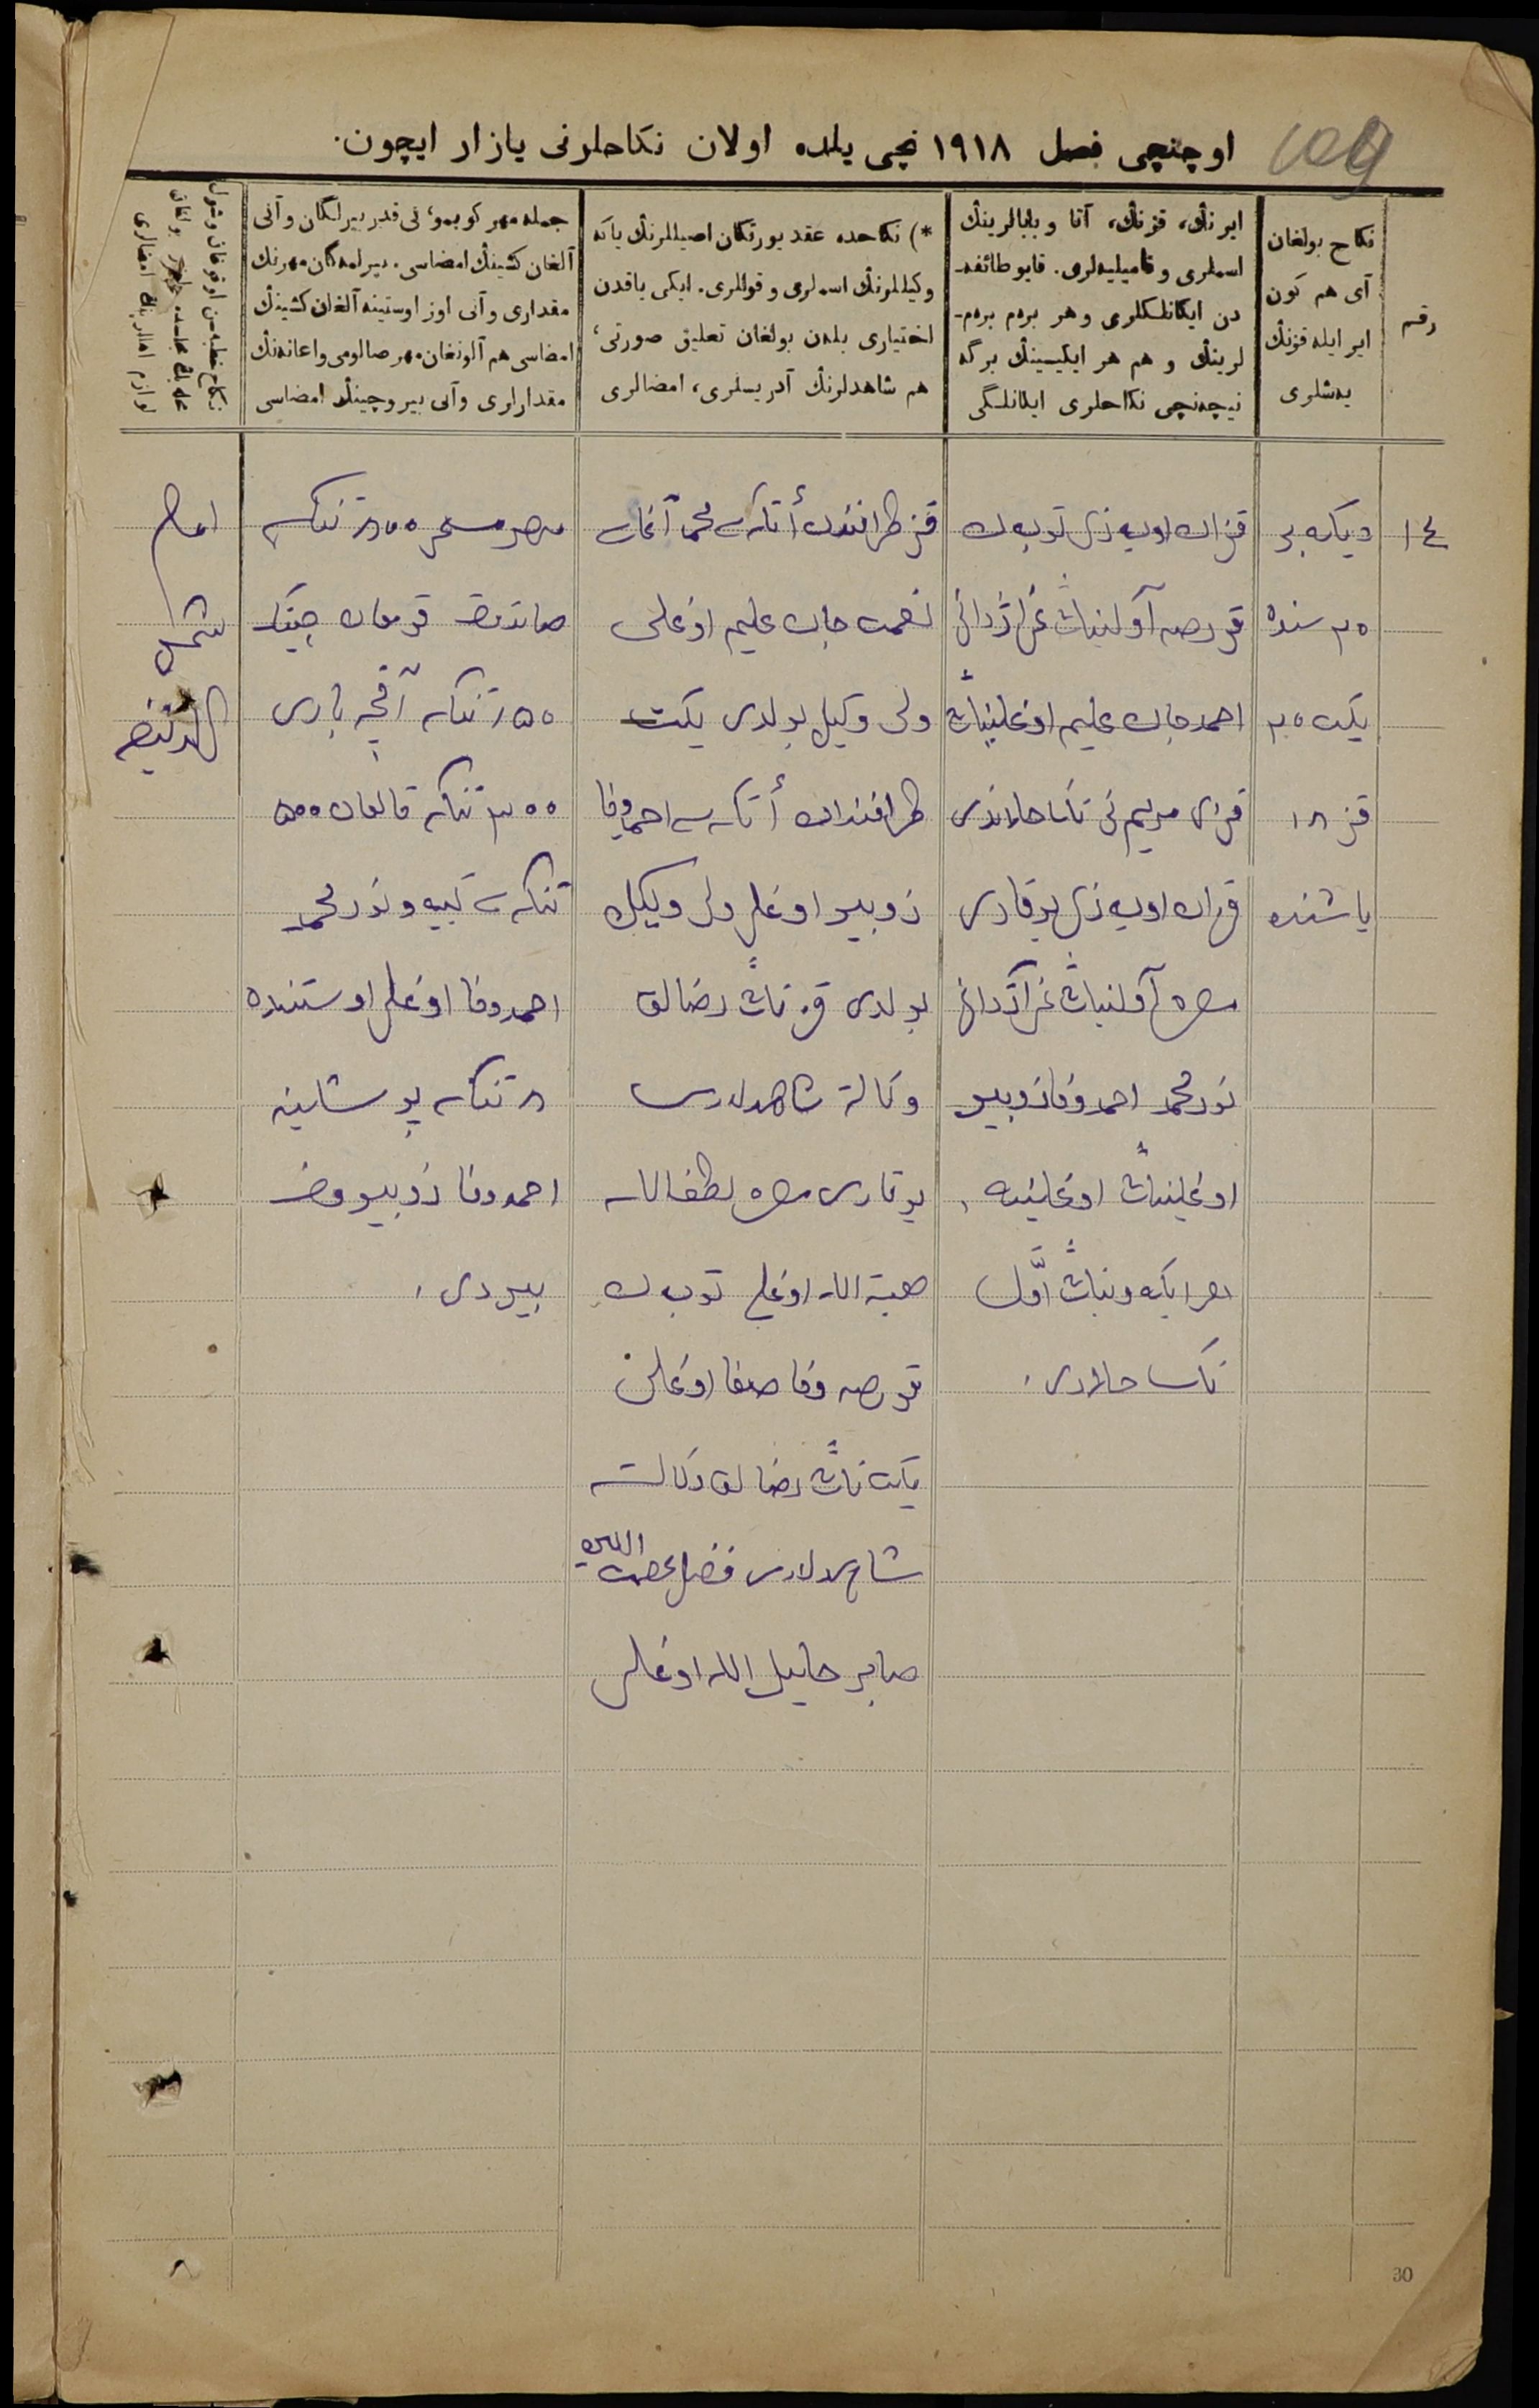 اوچنچی فصل ۱۹۱۸ نچی یلده اولان نکاحلرنی یازار ایچون.
رقم
نکاح بولغان
آی هم کون
ایر ایله قزنڭ
یه‌شلری
ایرنڭ، قزنڭ، آتا و بابالرینڭ
اسملری و فامیلیه‌لری. قایو طائفه‌-
دن ایکانلکلری و هر برم برم-
لرینڭ و هم هر ایکیسینڭ برگه
نیچه‌نچی نکاحلری ایکانلگی
*) نکاحده عقد یورتکان اصیللرنڭ یاکه
وکیللرنڭ اسملری و قوللری. ایکی یاقدن
اختیاری بلەن بولغان تعلیق صورتی،
هم شاهدلرنڭ آدریسلری، امضالری
جمله مهر کوبمو، نی قدر بیرلگان و آنی
آلغان کشینڭ امضاسی. بیرلمه‌گان مهرنڭ
مقداری و آنی اوز اوستینه آلغان کشینڭ
امضاسی هم آلونغان مهر صالومی و اعانه‌نڭ
مقدارلری و آنی بیروچینڭ امضاسی
۱٤
دیکەبر
۲۵ سنده
یکت ۲۵
قز ۱۸
یاشنده
قزان اویه‌زی توبه‌ن
قورصه آولینیڭ غراژدانی
احمدجان علیم اوغلینیڭ
قزی مریم نی نکاحلاندی
قزان اویه‌زی یوقاری
آولینیڭ غراژدانی
نورمحمد احمدوفا زوبیر
اوغلینیڭ اوغلینه.
هر ایکه‌وینیڭ اوّل
نکاحلاری.
قز طرافندن أتاسی محمد آغاسی
نعمت جان علیم اوغلی
ولی وکیل بولدی یکت
طرافندان أتاسی احمدوفا
زوبیر اوغلی ولی وکیل
بولدی قزنڭ رضالق
وکالة شاهدلاری
یوقاری لطف الله
هبة الله اوغلی توبه‌ن
قورصه وفا صفا اوغلی
یکت نڭ رضالق وکالت
شاهدلاری فضل
صابر خلیل الله اوغلی
مهر مسمی ۸۵۰ تنکه
۱۵۰ تنکه آقچه باری
۳۵۰ تنکه قالغان ۵۰۰
تنکه‌سی نورمحمد
احمدوفا اوغلی اوستنده
۸ تنکه پوشلینه
احمدوفا زوبیروف
بیردی.
امام
30